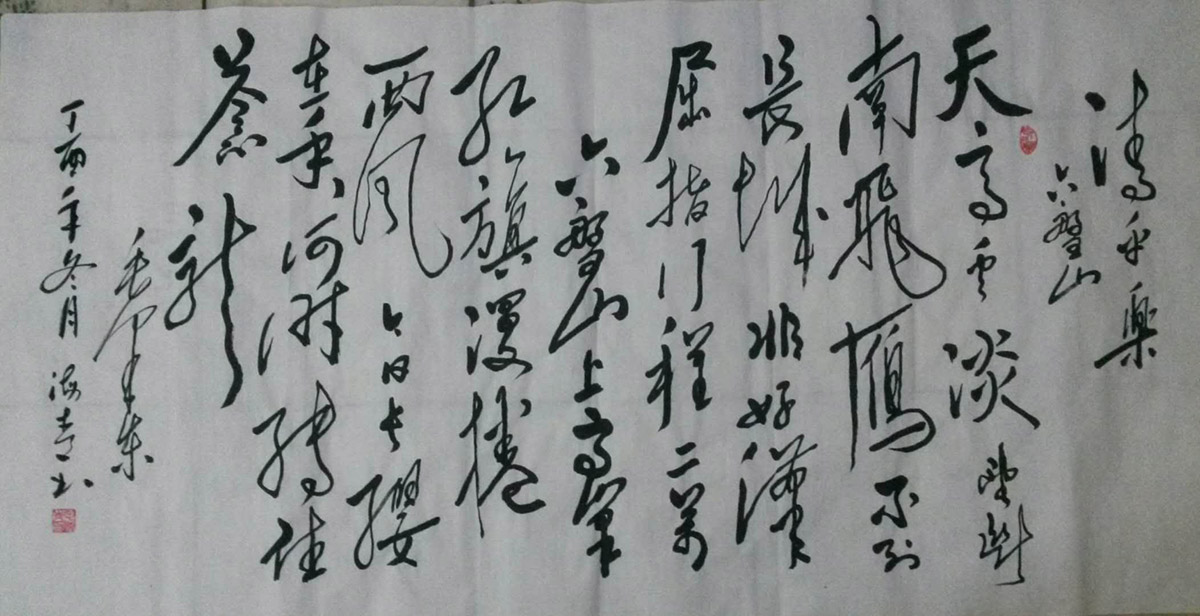 清平樂
六盤山
天高雲淡望斷
南飛鴈不到
長城非好漢
屈指行程二萬
六盤山上高峯
紅旗漫捲
西風今日長纓
在手何時縛住
蒼龍
毛澤東
丁酉年冬月海青书